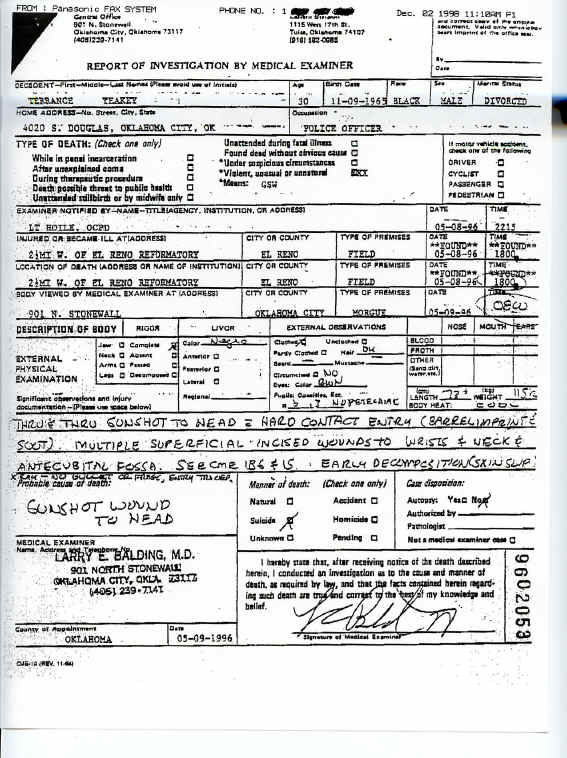 FROM : Panasonic FAX SYSTEM PHONE NO. : 1 Dec. 02 1998 11:10AM P1
Central Office
901 N. Stonewall 1115 West 17th St.
Oklahoma City, Oklahoma 73117 Tulsa, Oklahoma 74107
(405)239-7141
REPORT OF INVESTIGATION BY MEDICAL EXAMINER
By
Date
DECEDENT—First—Middle—Last Names (Please avoid use of initials) Age Birth Date Race Sex Marital Status
TERRANCE YEAKEY 30 11-09-1965 BLACK MALE DIVORCED
HOME ADDRESS—No. Street, City, State Occupation
4020 S. DOUGLAS, OKLAHOMA CITY, OK POLICE OFFICER
TYPE OF DEATH: (Check one only)
While in penal incarceration
After unexplained coma
During therapeutic procedure
Death possible threat to public health
Unattended stillbirth or by midwife only
Unattended during fatal illness
Found dead without obvious cause
*Under suspicious circumstances
*Violent, unusual or unnatural XXX
*Means: GSW
If motor vehicle accident,
check one of the following
DRIVER
CYCLIST
PASSENGER
PEDESTRIAN
EXAMINER NOTIFIED BY—NAME—TITLE(AGENCY, INSTITUTION, OR ADDRESS) DATE TIME
LT HOILE, OCPD 05-08-96 2215
INJURED OR BECAME ILL AT(ADDRESS) CITY OR COUNTY TYPE OF PREMISES DATE TIME
**FOUND** **FOUND**
2½MI W. OF EL RENO REFORMATORY EL RENO FIELD 05-08-96 1800
LOCATION OF DEATH (ADDRESS OR NAME OF INSTITUTION) CITY OR COUNTY TYPE OF PREMISES DATE TIME
**FOUND** **FOUND**
2½MI W. OF EL RENO REFORMATORY EL RENO FIELD 05-08-96 1800
BODY VIEWED BY MEDICAL EXAMINER AT (ADDRESS) CITY OR COUNTY TYPE OF PREMISES DATE TIME
901 N. STONEWALL OKLAHOMA CITY MORGUE 05-09-96
DESCRIPTION OF BODY RIGOR LIVOR EXTERNAL OBSERVATIONS NOSE MOUTH EARS
EXTERNAL
PHYSICAL
EXAMINATION
Significant observations and injury
documentation—(Please use space below)
Jaw Complete
Neck Absent
Arms Passed
Legs Decomposed
Color Negro
Anterior
Posterior
Lateral
Regional
Clothed Unclothed
Partly Clothed Hair
Beard Mustache
Circumcised NO
Eyes: Color BRN
Pupils: Opacities, Etc.
BLOOD
FROTH
OTHER
LENGTH WEIGHT
BODY HEAT: COOL
THRU & THRU GUNSHOT TO HEAD = HARD CONTACT ENTRY (BARREL IMPRINT &
SOOT). MULTIPLE SUPERFICIAL INCISED WOUNDS TO WRISTS & NECK &
ANTECUBITAL FOSSA. SEE CME 1B6 & 15. EARLY DECOMPOSITION (SKIN SLIP)
Probable cause of death:
GUNSHOT WOUND
TO HEAD
Manner of death: (Check one only)
Natural Accident
Suicide Homicide
Unknown Pending
Case disposition:
Autopsy: Yes No
Authorized by
Pathologist
Not a medical examiner case
MEDICAL EXAMINER
Name, Address and Telephone No.
LARRY E. BALDING, M.D.
901 NORTH STONEWALL
OKLAHOMA CITY, OKLA. 73117
(405) 239-7141
I hereby state that, after receiving notice of the death described
herein, I conducted an investigation as to the cause and manner of
death, as required by law, and that the facts contained herein regard-
ing such death are true and correct to the best of my knowledge and
belief.
County of Appointment Date
OKLAHOMA 05-09-1996
Signature of Medical Examiner
9602053